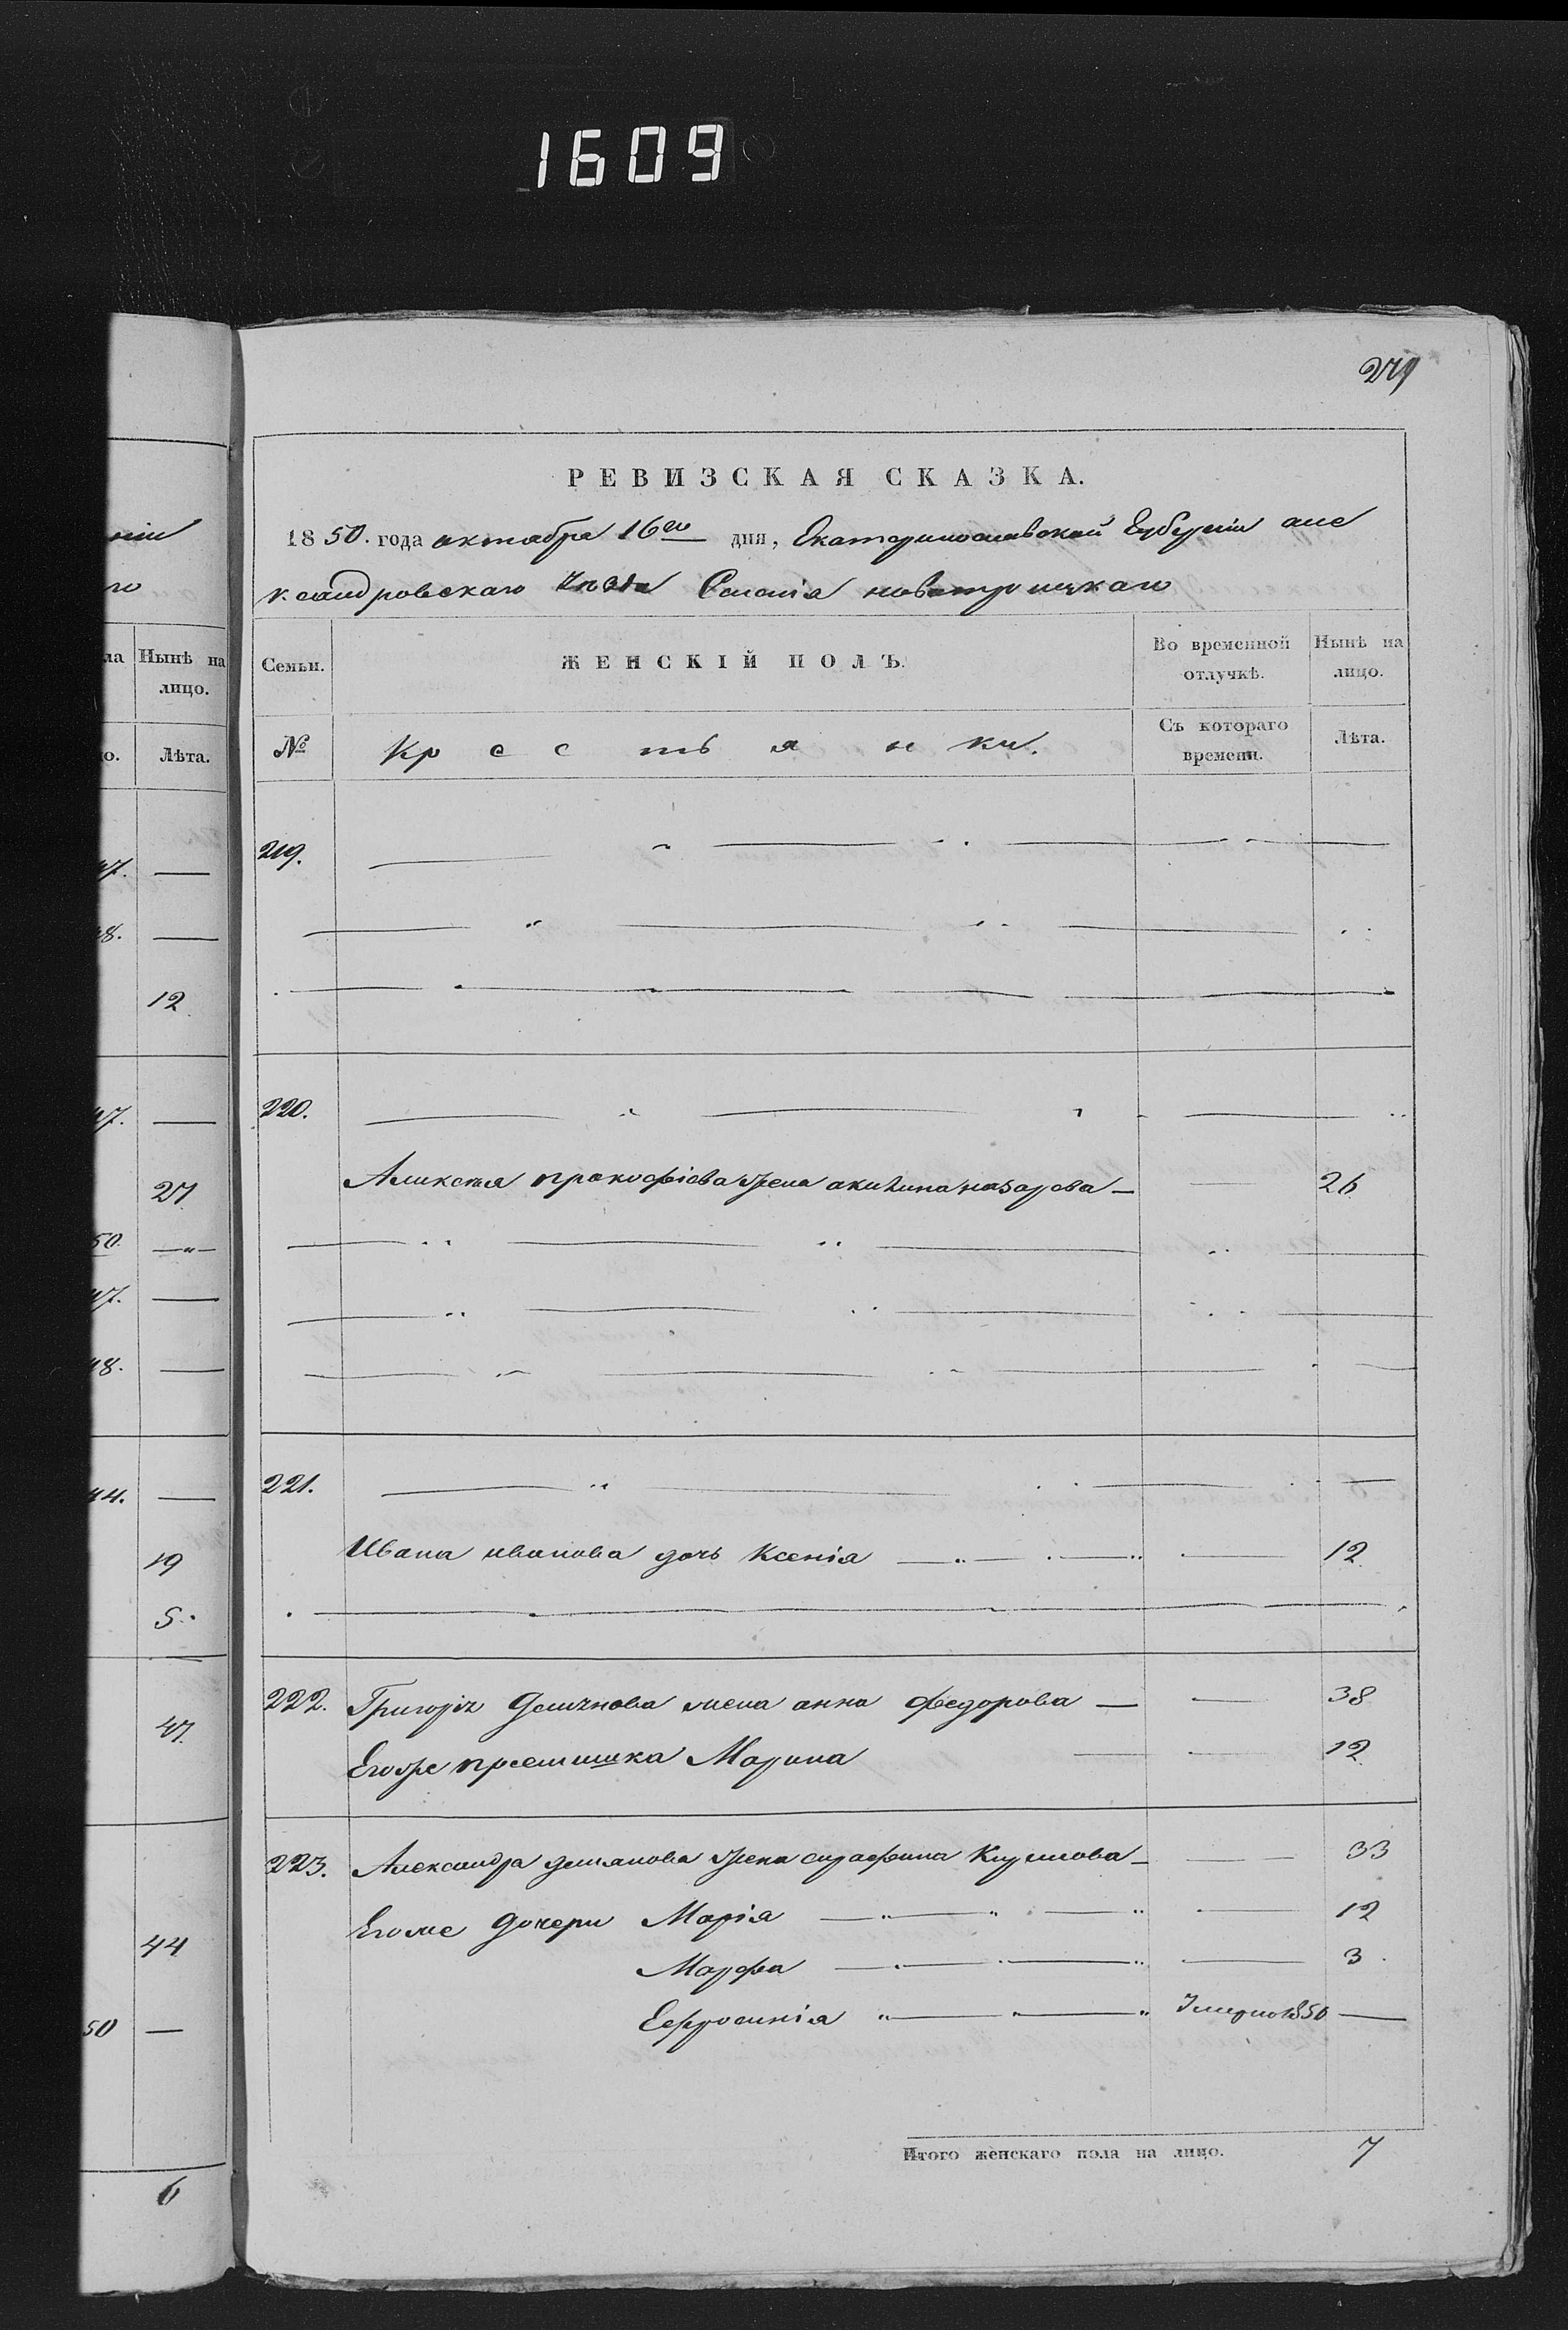 1609
279
ніи
го
ла Нынѣ на лицо.
о. Лѣта.
47. —
48. —
12
47. —
27
50. —„—
47. —
48. —
44. —
19
5.
47.
44
50 —
6
РЕВИЗСКАЯ СКАЗКА.
1850. года октабра 16го дня, Екатеринославской Губернiи але
ксандровскаго Уѣзда Селенiя новотроицкаго
Семьи. ЖЕНСКІЙ ПОЛЪ. Во временной отлучкѣ. Нынѣ на лицо.
№ Крестьянки. Съ котораго времени. Лѣта.
219.
220.
Аликсѣя прокофiева жена акилина назарова — — 26
221.
Ивана иванова дочь Ксенiя — 12.
222. Григорiя Демянова жена анна федорова — — 38
Егоже премишка Марина — — 12
223. Александра демянова жена сирафима Кирилова — — 33
Егоже Дочери Марiя — 12
Марфа — 3.
Ефросинiя — 1850 —
Итого женскаго пола на лицо. 7